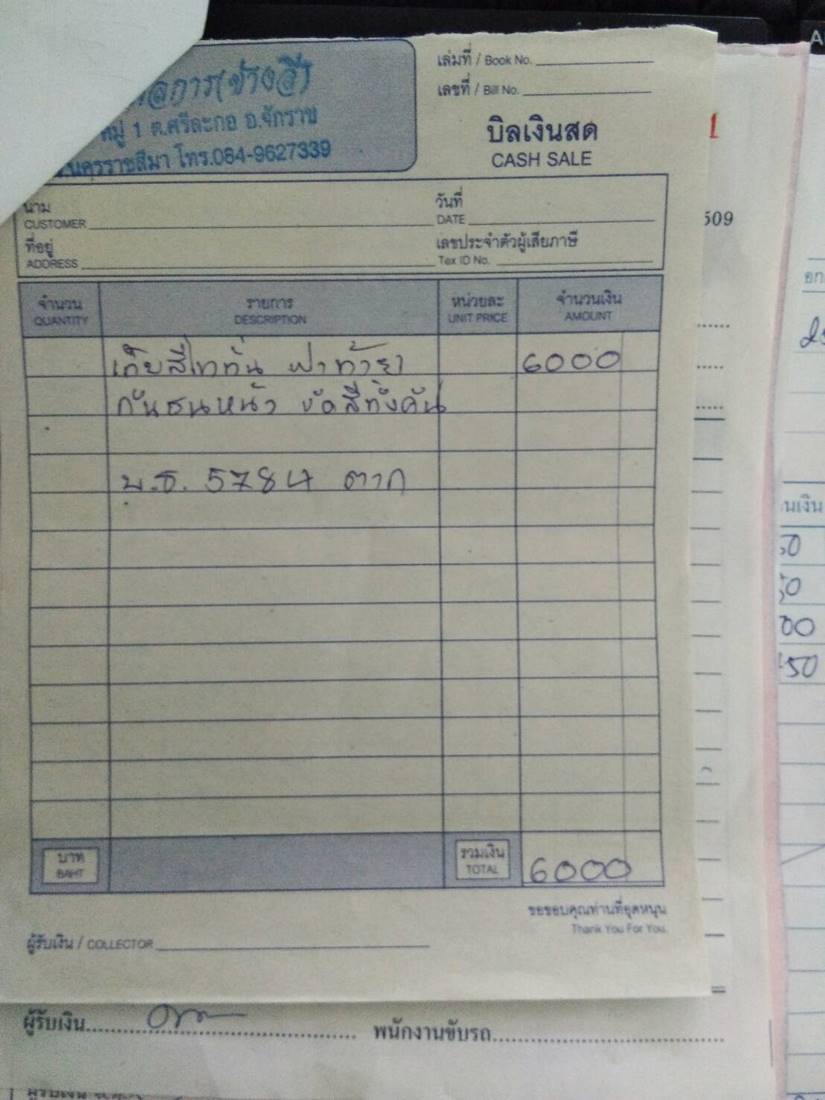 การ(ช่างอี)
หมู่ 1 ต.ศรีละกอ อ.จักราช
นครราชสีมา โทร.084-9627339
เล่มที่ / Book No.
เลขที่ / Bill No.
บิลเงินสด
CASH SALE
นาม
CUSTOMER
วันที่
DATE
ที่อยู่
ADDRESS
เลขประจำตัวผู้เสียภาษี
Tex ID No.
จำนวน
QUANTITY
รายการ
DESCRIPTION
หน่วยละ
UNIT PRICE
จำนวนเงิน
AMOUNT
ฝาท้าย 6000
กันชนหน้า ขัดสีทั้งคัน
บ.ธ. 5784 ตาก
บาท
BAHT
รวมเงิน
TOTAL
6000
ขอขอบคุณท่านที่อุดหนุน
Thank You For You.
ผู้รับเงิน / COLLECTOR
ผู้รับเงิน
พนักงานขับรถ
509
นเงิน
50
50
00
450